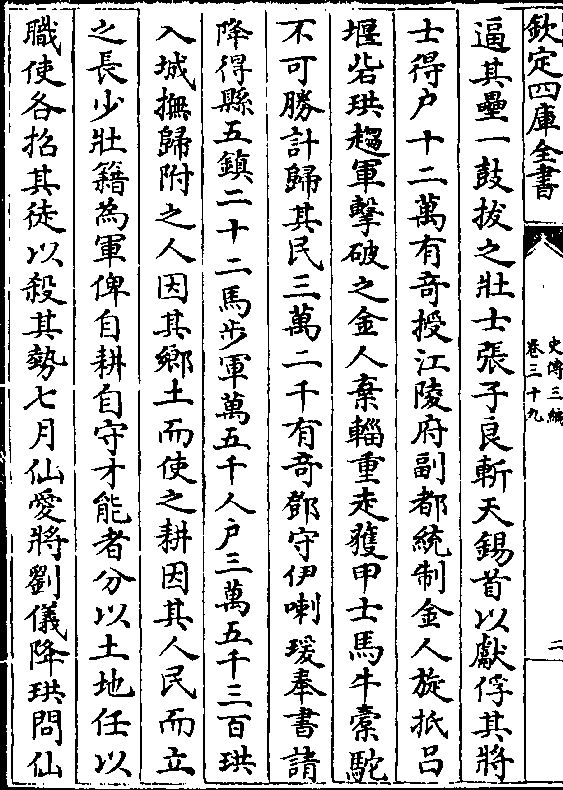 欽定四庫全書
史傳三編
卷三十九
二
逼其壘一鼓拔之壯士張子良斬天錫首以獻俘其將
士得户十二萬有奇授江陵府副都統制金人旋抵呂
堰砦珙趨軍擊破之金人棄輜重走獲甲士馬牛橐駝
不可勝計歸其民三萬二千有奇鄧守伊喇瑗奉書請
降得縣五鎮二十二馬步軍萬五千人户三萬五千三百珙
入城撫歸附之人因其鄉土而使之耕因其人民而立
之長少壯籍為軍俾自耕自守才能者分以土地任以
職使各招其徒以殺其勢七月仙愛將劉儀降珙問仙